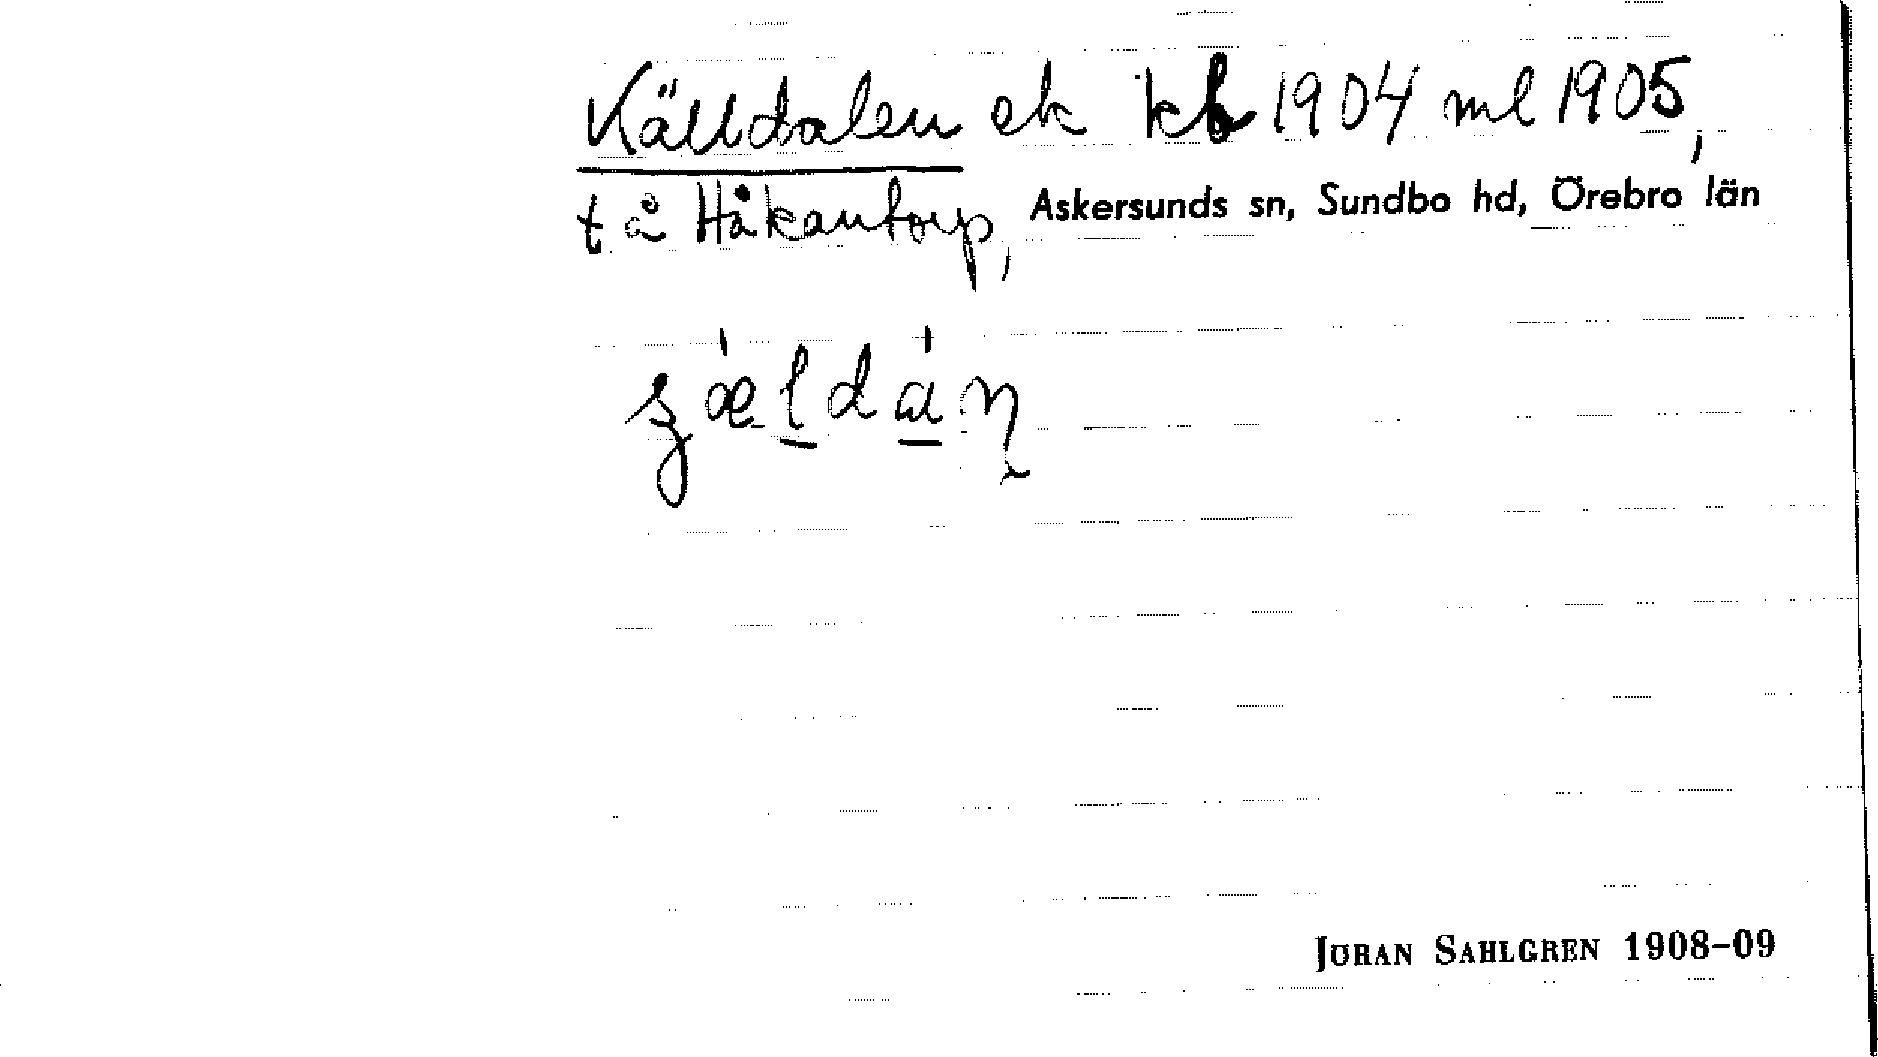 Källdalen ek kb 1904 ml 1905,
t å Håkantorp, Askersunds sn, Sundbo hd, Örebro län
JÖRAN SAHLGREN 1908–09